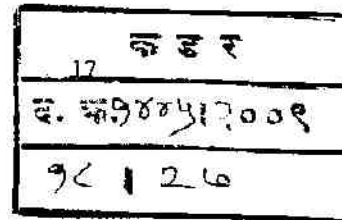 क ह र
17
द. क्र.१४४५/२००९
१८ | २७